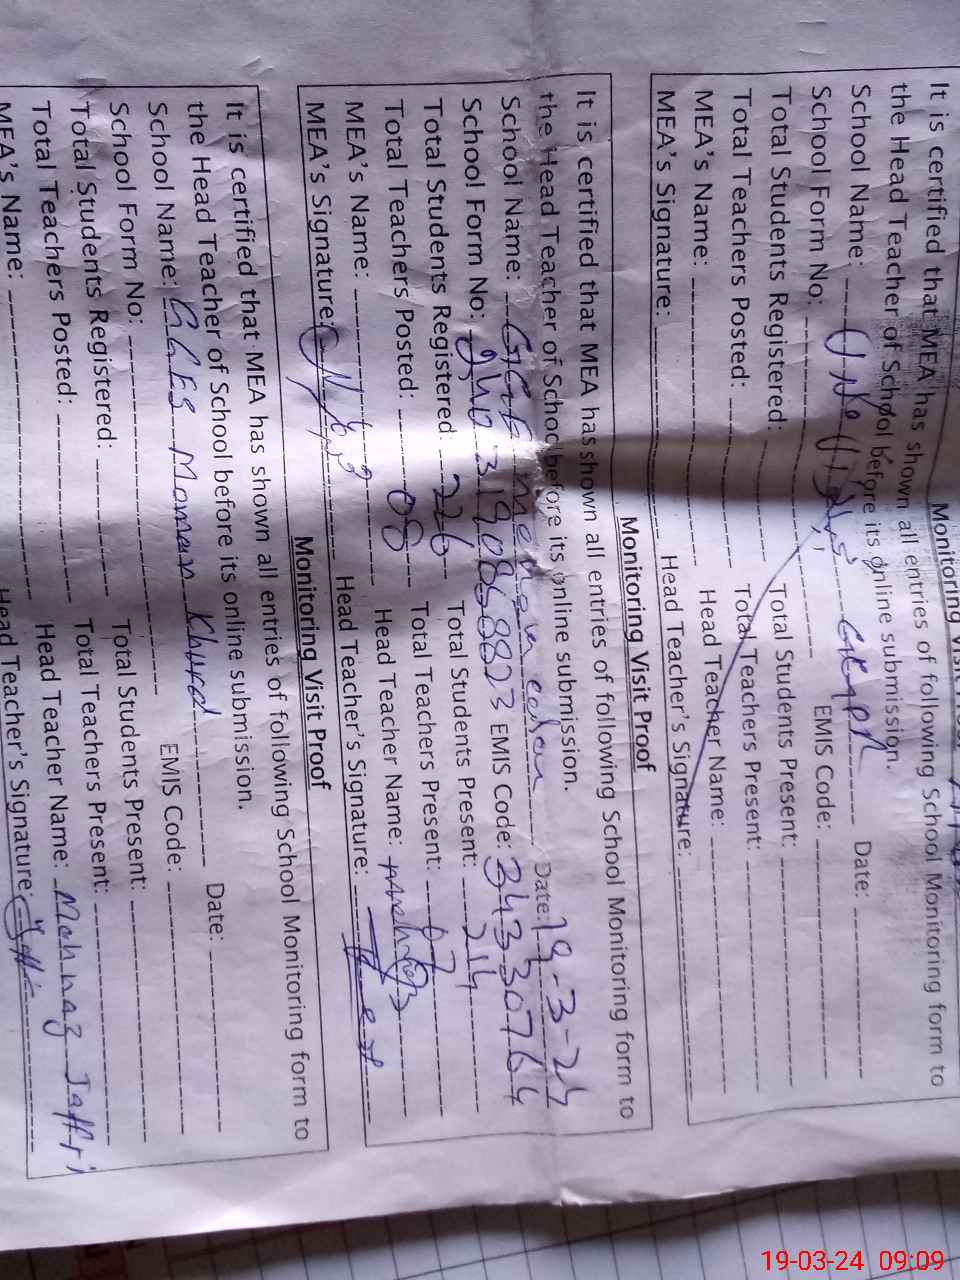 Monitoring Visit Proof
It is certified that MEA has shown all entries of following School Monitoring form to
the Head Teacher of School before its online submission.
School Name: Date:
School Form No: EMIS Code:
Total Students Registered: Total Students Present:
Total Teachers Posted: Total Teachers Present:
MEA's Name: Head Teacher Name:
MEA's Signature: Head Teacher's Signature:
Monitoring Visit Proof
It is certified that MEA has shown all entries of following School Monitoring form to
the Head Teacher of School before its online submission.
School Name: Date: 19-3-24
School Form No: EMIS Code: 34330764
Total Students Registered: 226 Total Students Present: 214
Total Teachers Posted: 08 Total Teachers Present: 07
MEA's Name: Head Teacher Name:
MEA's Signature: Head Teacher's Signature:
Monitoring Visit Proof
It is certified that MEA has shown all entries of following School Monitoring form to
the Head Teacher of School before its online submission.
School Name: GGES Moman Khurd Date:
School Form No: EMIS Code:
Total Students Registered: Total Students Present:
Total Teachers Posted: Total Teachers Present:
MEA's Name: Head Teacher Name: Mahnaz Jaffri
Head Teacher's Signature:
19-03-24 09:09